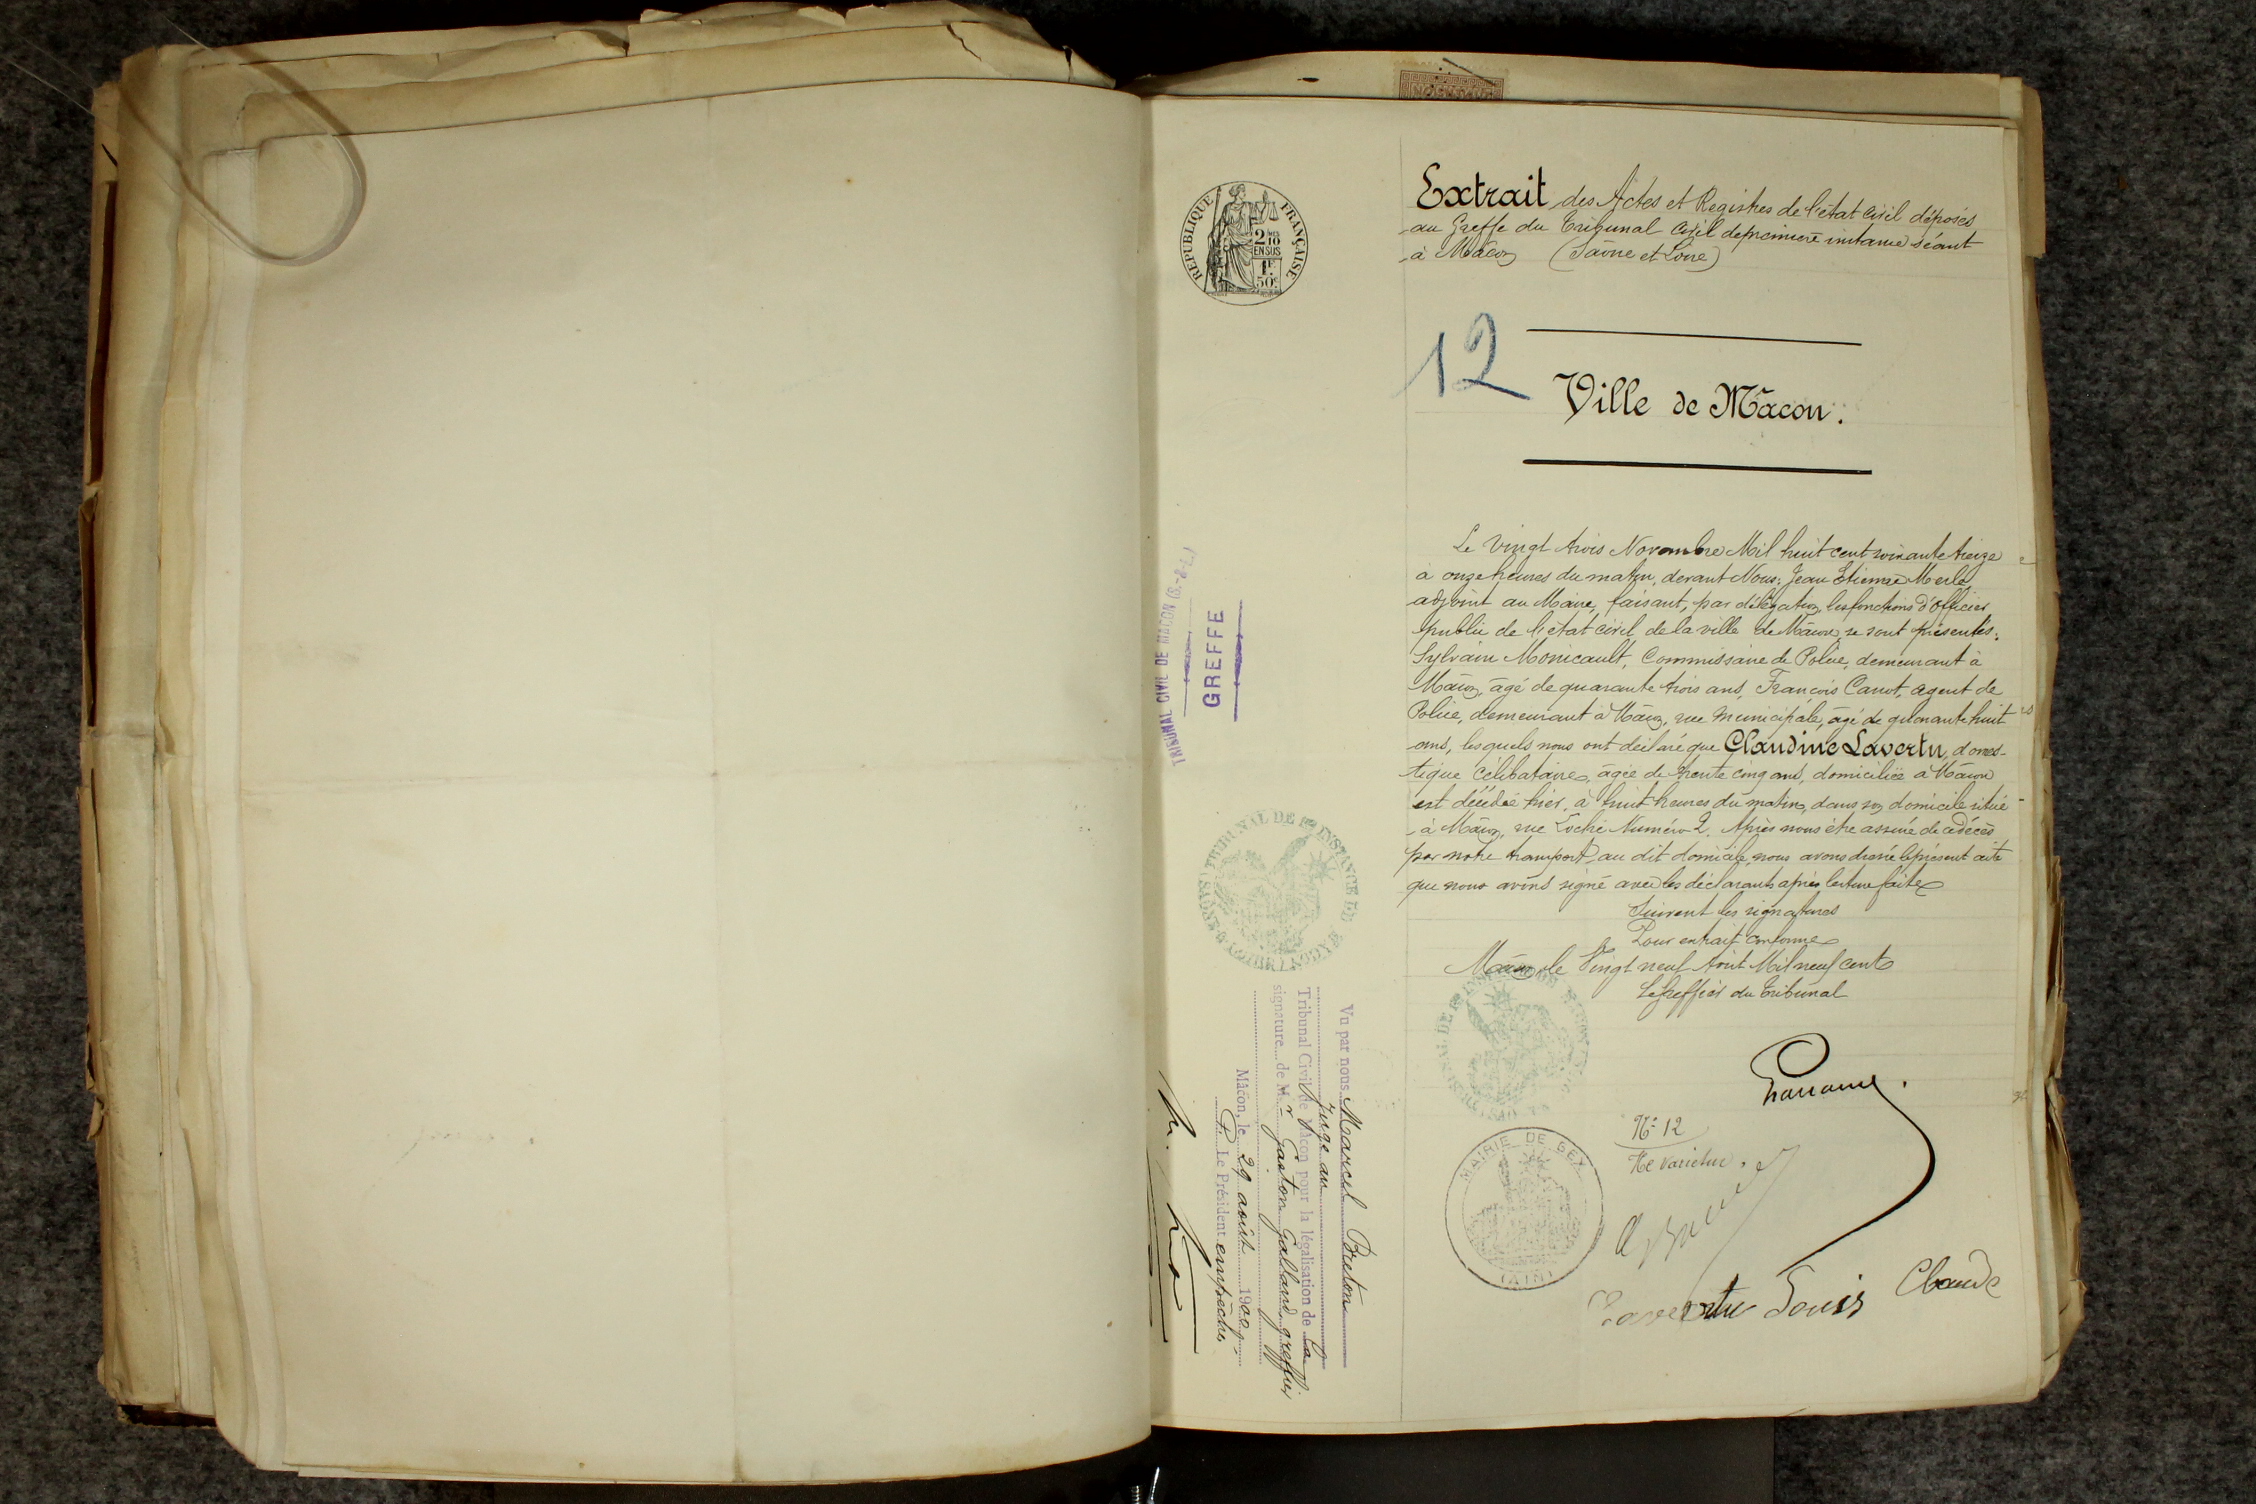 Extrait des Actes et Registres de l'état civil déposés
au Greffe du Tribunal Civil de première instance séant
à Mâcon (Saône et Loire)
RÉPUBLIQUE FRANÇAISE
2/10
EN SUS
1F
50c
12
Ville de Mâcon.
Le vingt trois Novembre Mil huit cent soixante treize
à onze heures du matin, devant Nous: Jean Etienne Merle,
adjoint au Maire, faisant, par délégation, les fonctions d'officier
public de l'état civil de la ville de Mâcon, se sont présentés:
Sylvain Monicault, Commissaire de Police, demeurant à
Mâcon, âgé de quarante trois ans, François Carrot, agent de
Police, demeurant à Mâcon, rue Municipale, âgé de quarante huit
ans, lesquels nous ont déclaré que Claudine Lavertu, domes-
tique célibataire, âgée de trente cinq ans, domiciliée à Mâcon
est décédée hier, à huit heures du matin, dans son domicile situé
à Mâcon, rue Loché Numéro 2. Après nous être assuré de ce décès
par notre transport au dit domicile, nous avons dressé le présent acte
que nous avons signé avec les déclarants après lecture faite
Suivent les signatures
Pour extrait conforme
Mâcon le Vingt neuf Août Mil neuf cent
Le greffier du Tribunal
No 12
Ne varietur.
MAIRIE DE GEX
(AIN)
Lavertu Louis Claude
TRIBUNAL CIVIL DE MACON (S.-&-L.)
GREFFE
TRIBUNAL DE 1re INSTANCE DE MACON (SAONE & LOIRE)
Vu par nous Marcel Breton
Juge au
Tribunal Civil de Mâcon pour la légalisation de la
signature de Mr Gaston Galland, greffier
Mâcon, le 29 août 1900
P. Le Président empêché